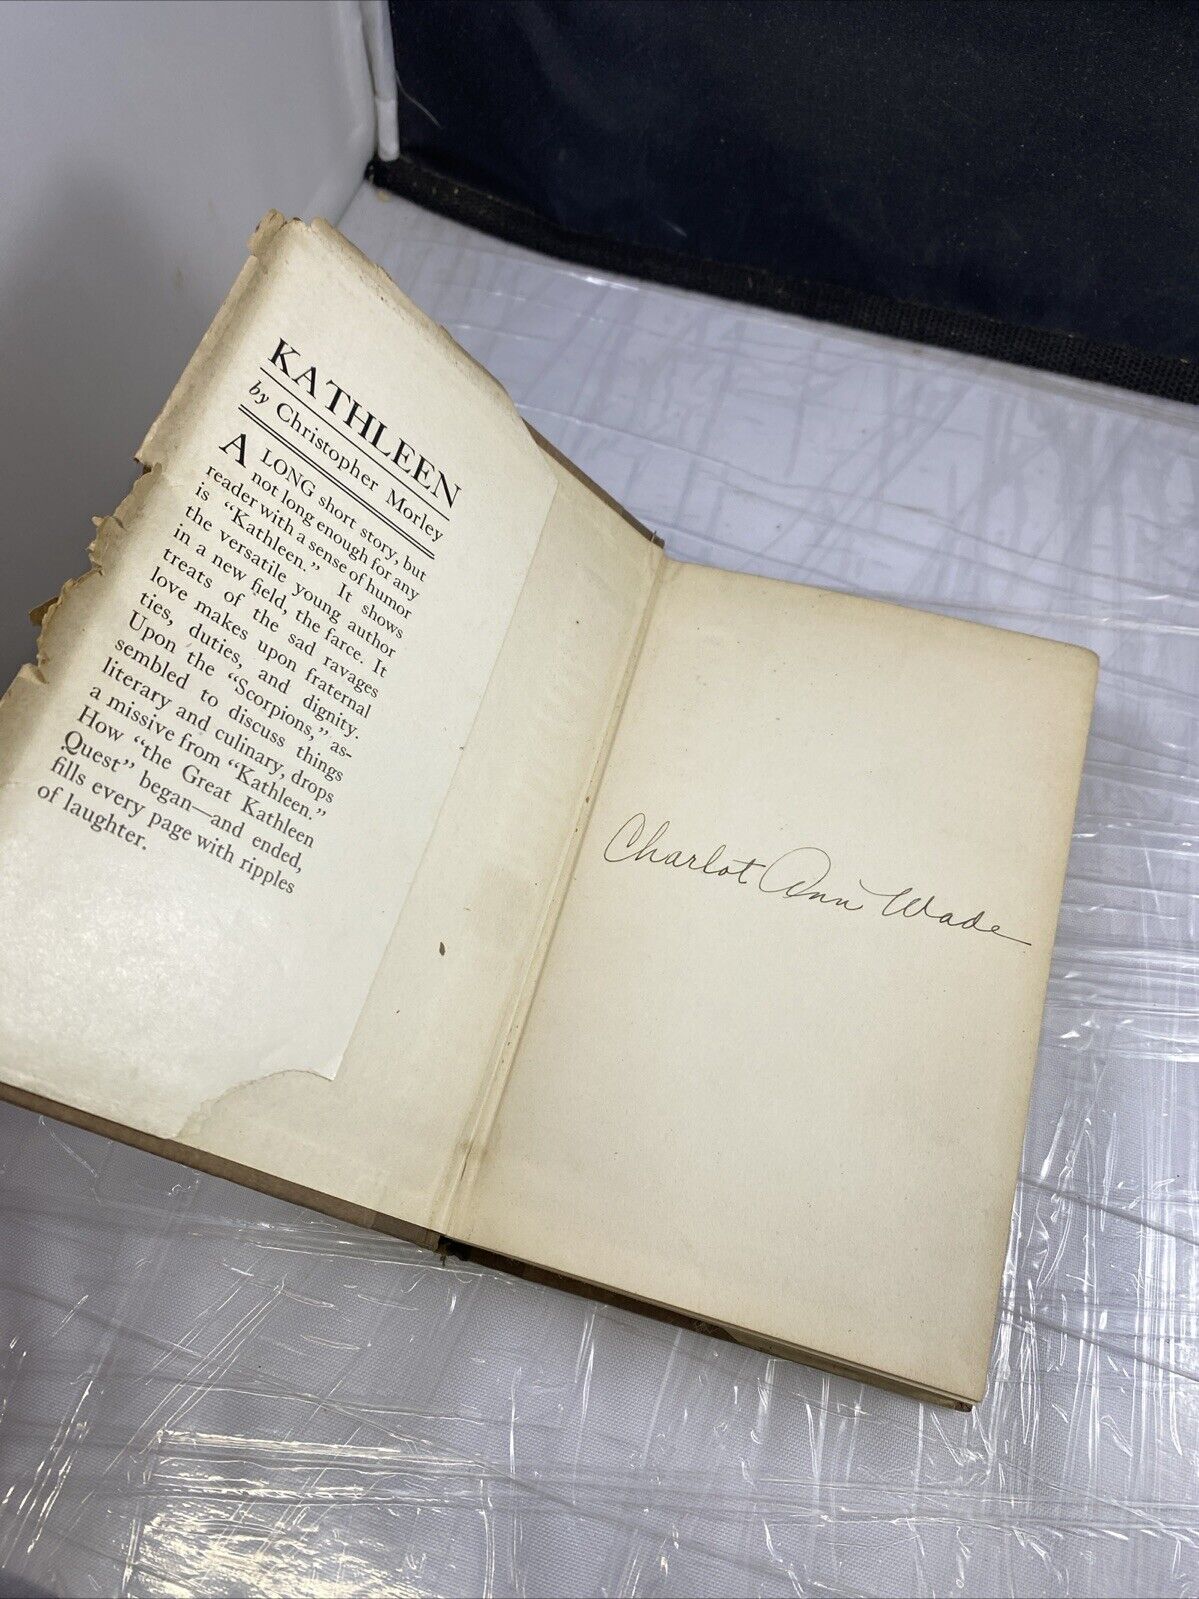 KATHLEEN
by Christopher Morley
A LONG short story, but
not long enough for any
reader with a sense of humor
is "Kathleen." It shows
the versatile young author
in a new field, the farce. It
treats of the sad ravages
love makes upon fraternal
ties, duties, and dignity.
Upon the "Scorpions," as-
sembled to discuss things
literary and culinary, drops
a missive from "Kathleen."
How "the Great Kathleen
Quest" began—and ended,
fills every page with ripples
of laughter.
Charlot Ann Wade